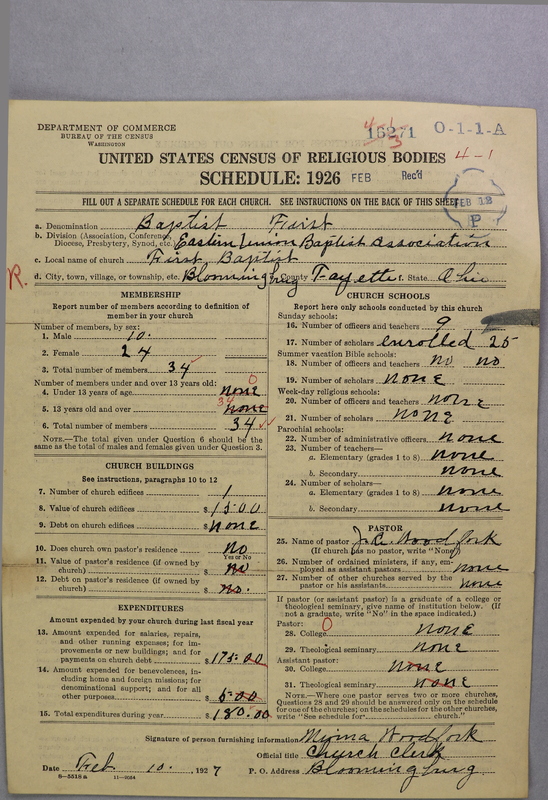 DEPARTMENT OF COMMERCE
BUREAU OF THE CENSUS
WASHINGTON
16271 O-1-1-A
UNITED STATES CENSUS OF RELIGIOUS BODIES 4-1
SCHEDULE: 1926 FEB Rec'd
FEB 12
P
FILL OUT A SEPARATE SCHEDULE FOR EACH CHURCH. SEE INSTRUCTIONS ON THE BACK OF THIS SHEET
a. Denomination Baptist First
b. Division (Association, Conference, Diocese, Presbytery, Synod, etc. Eastern Union Baptist Association
c. Local name of church First Baptist
R. d. City, town, village, or township, etc. Bloomingburg e. County Fayette f. State Ohio
MEMBERSHIP
Report number of members according to definition of
member in your church
Number of members, by sex:
1. Male 10.
2. Female 24
3. Total number of members 34
Number of members under and over 13 years old:
4. Under 13 years of age none 0
5. 13 years old and over none 34
6. Total number of members 34
NOTE.—The total given under Question 6 should be the
same as the total of males and females given under Question 3.
CHURCH BUILDINGS
See instructions, paragraphs 10 to 12
7. Number of church edifices 1
8. Value of church edifices $ 1500
9. Debt on church edifices $ none
10. Does church own pastor's residence no
Yes or No
11. Value of pastor's residence (if owned by
church) $ no
12. Debt on pastor's residence (if owned by
church) $ no.
EXPENDITURES
Amount expended by your church during last fiscal year
13. Amount expended for salaries, repairs,
and other running expenses; for im-
provements or new buildings; and for
payments on church debt $ 175.00
14. Amount expended for benevolences, in-
cluding home and foreign missions; for
denominational support; and for all
other purposes $ 5.00
15. Total expenditures during year $ 180.00
CHURCH SCHOOLS
Report here only schools conducted by this church
Sunday schools:
16. Number of officers and teachers 9
17. Number of scholars enrolled 25
Summer vacation Bible schools:
18. Number of officers and teachers no no
19. Number of scholars none
Week-day religious schools:
20. Number of officers and teachers none
21. Number of scholars none
Parochial schools:
22. Number of administrative officers none
23. Number of teachers—
a. Elementary (grades 1 to 8) none
b. Secondary none
24. Number of scholars—
a. Elementary (grades 1 to 8) none
b. Secondary none
PASTOR
25. Name of pastor J. C. Woodfork
(If church has no pastor, write "None")
26. Number of ordained ministers, if any, em-
ployed as assistant pastors none
27. Number of other churches served by the
pastor or his assistants none
If pastor (or assistant pastor) is a graduate of a college or
theological seminary, give name of institution below. (If
not a graduate, write "No" in the space indicated.)
Pastor: 0
28. College none
29. Theological seminary none
Assistant pastor:
30. College none
31. Theological seminary none
NOTE.—Where one pastor serves two or more churches,
Questions 28 and 29 should be answered only on the schedule
for one of the churches; on the schedules for the other churches,
write "See schedule for church."
Signature of person furnishing information Myrna Woodfork
Official title Church Clerk
Date Feb 10. 1927 P. O. Address Bloomingburg